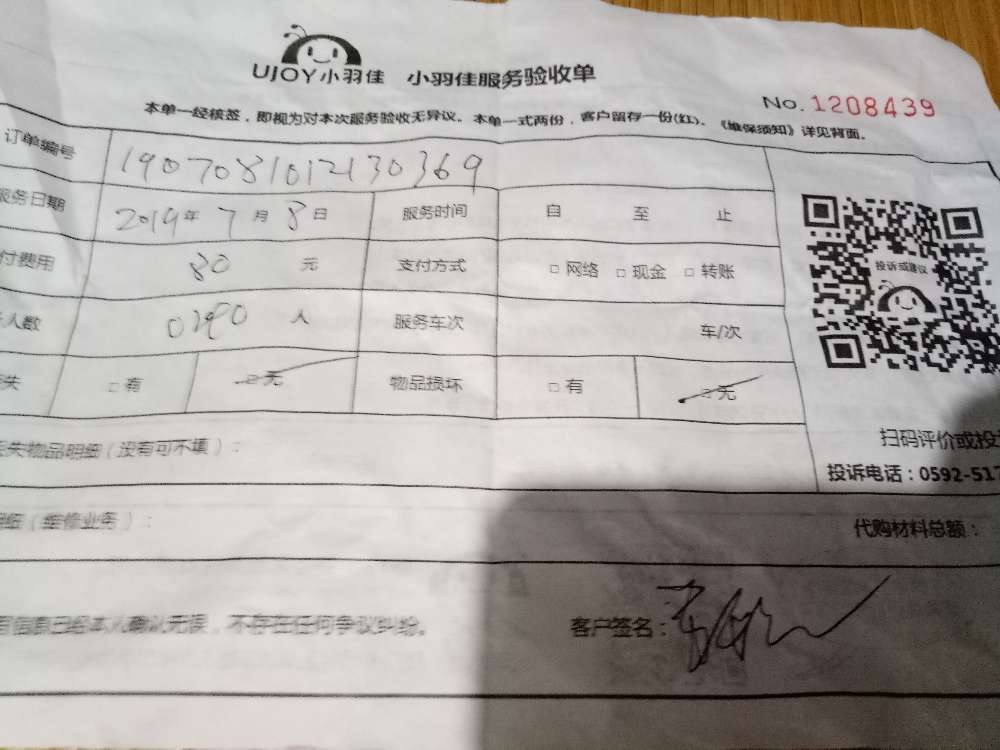 UJOY小羽佳 小羽佳服务验收单
No. 1208439
本单一经核签，即视为对本次服务验收无异议。本单一式两份，客户留存一份(红)。《维保须知》详见背面。
订单编号 1907081012130369
服务日期 2019年 7月 8日 服务时间 自 至 止
付费用 80 元 支付方式 □网络 □现金 □转账
人数 人 服务车次 车/次
失 □有 □无 物品损坏 □有 □无
投诉或建议
扫码评价或投
投诉电话：0592-517
失物品明细（没有可不填）：
明细（维修业务）： 代购材料总额：
信息已经本人确认无误，不存在任何争议纠纷。 客户签名：